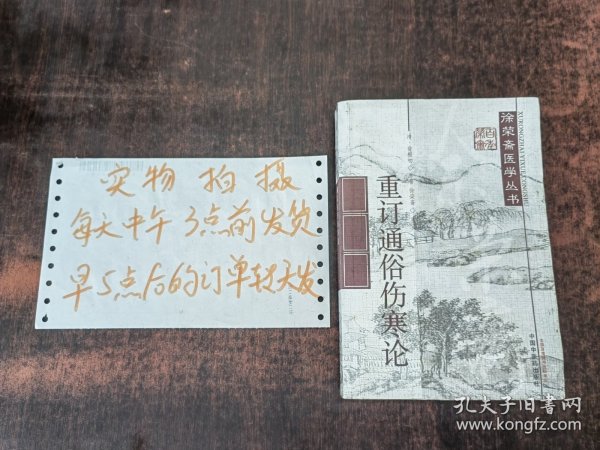 实物拍摄
每天中午3点前发货
早5点后的订单转天发
徐荣斋医学丛书
XURONGZHAI YIXUE CONGSHU
重订通俗伤寒论
孔夫子旧书网
www.kongfz.com